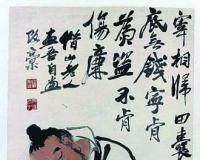 宰相歸田囊
底無錢寧肯
為盜不肯
傷廉
借山老人
自画